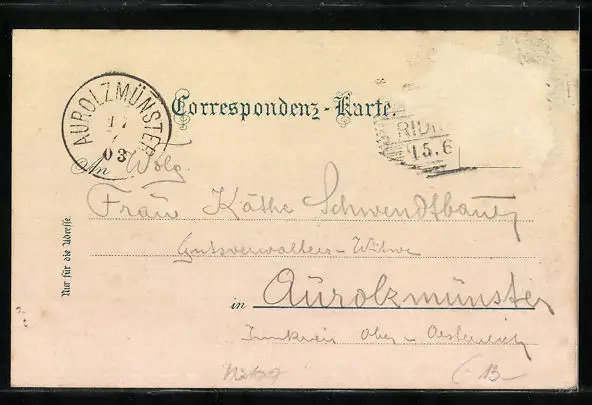 Correspondenz-Karte.
AUROLZMÜNSTER
17
7
03
RIED
15.6
An Wolg.
Frau Käthe Schwendtbauer
Gutsverwalters-Witwe
Nur für die Adresse.
in Aurolzmünster
Innkreis Ober-Oesterreich
13